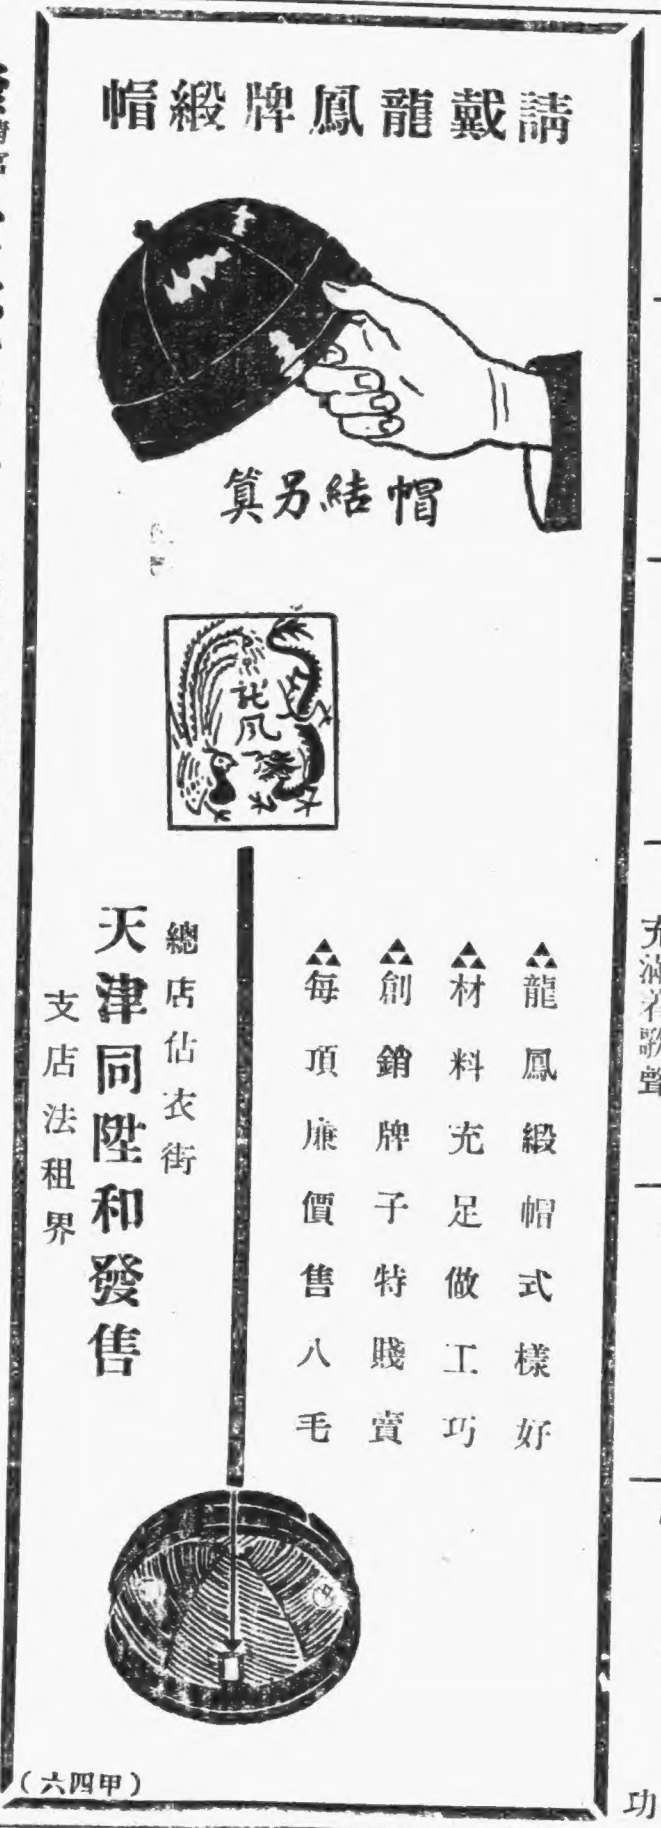 請戴龍鳳牌緞帽
帽結另算
龍鳳
龍鳳緞帽式樣好
材料充足做工巧
創銷牌子特賤賣
每頂廉價售八毛
總店估衣街
天津同陞和發售
支店法租界
(甲四六)
充滿着歌聲
功